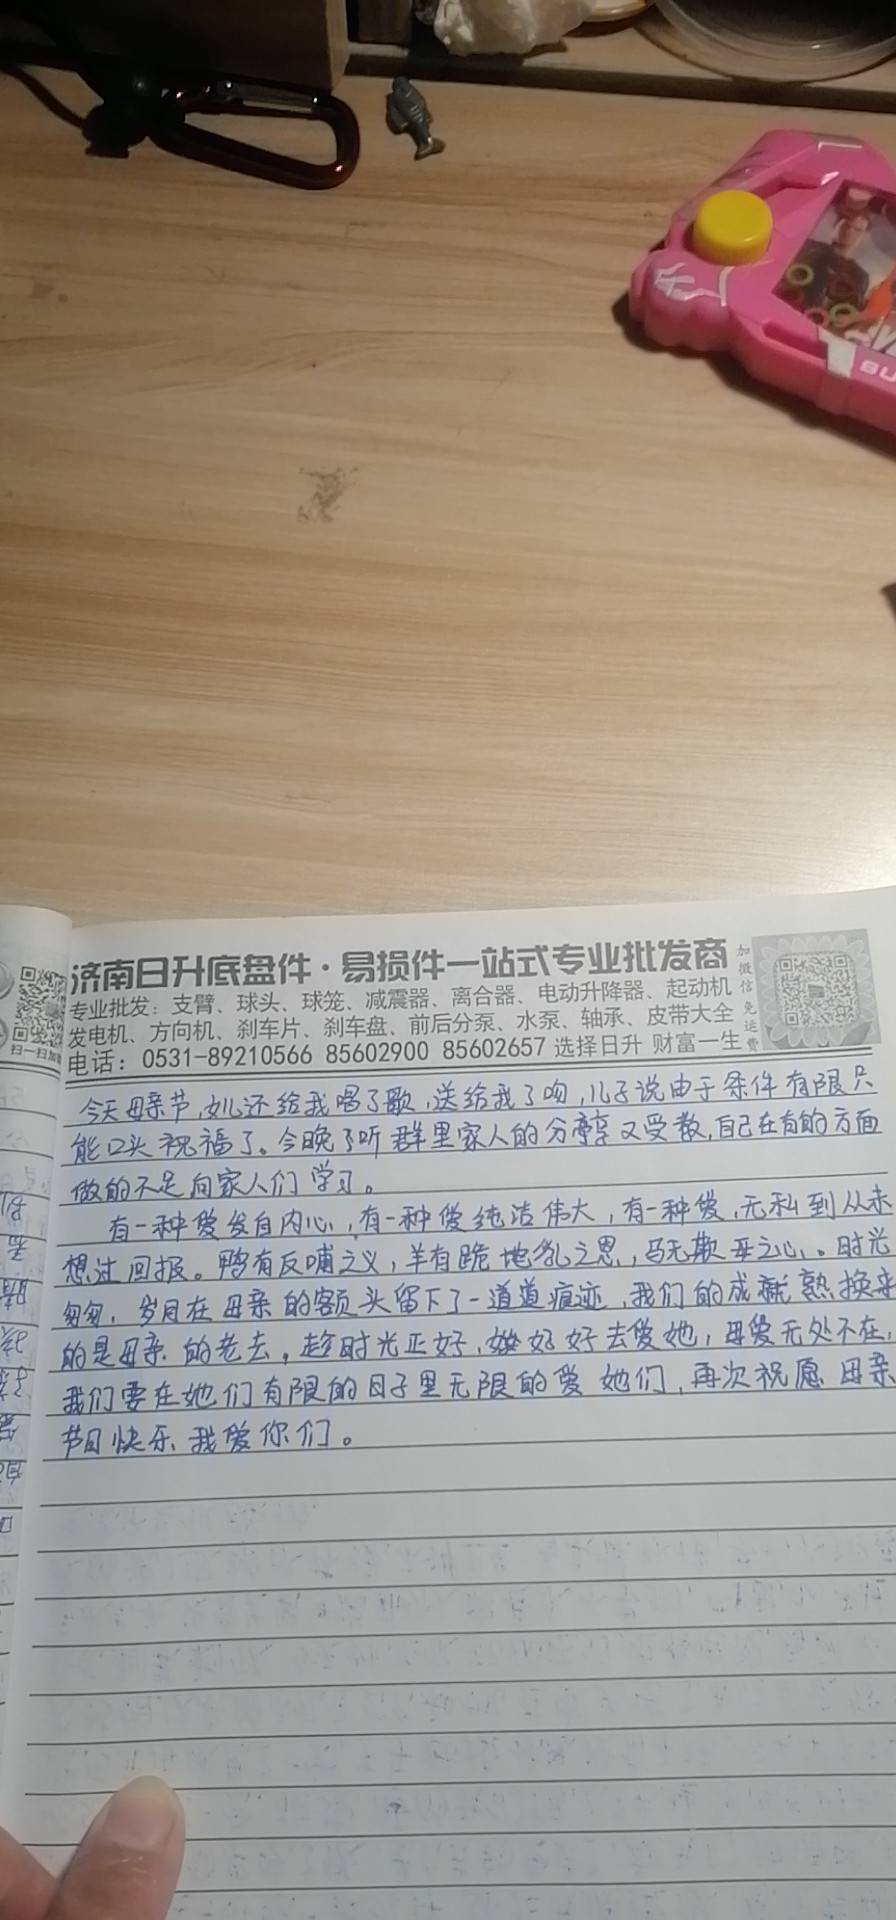 济南日升底盘件·易损件一站式专业批发商
专业批发：支臂、球头、球笼、减震器、离合器、电动升降器、起动机
发电机、方向机、刹车片、刹车盘、前后分泵、水泵、轴承、皮带大全
电话：0531-89210566 85602900 85602657 选择日升 财富一生
加微信免运费
扫一扫加
今天母亲节,女儿还给我唱了歌,送给我了吻,儿子说由于条件有限只
能口头祝福了。今晚了听群里家人的分享又受教,自己在有的方面
做的不足向家人们学习。
有一种爱发自内心,有一种爱纯洁伟大,有一种爱,无私到从未
想过回报。鸭有反哺之义,羊有跪地乳之恩,马无欺母之心。时光
匆匆,岁月在母亲的额头留下了一道道痕迹,我们的成熟换来
的是母亲的老去,趁时光正好,好好去爱她,母爱无处不在,
我们要在她们有限的日子里无限的爱她们,再次祝愿母亲
节日快乐 我爱你们。
BU